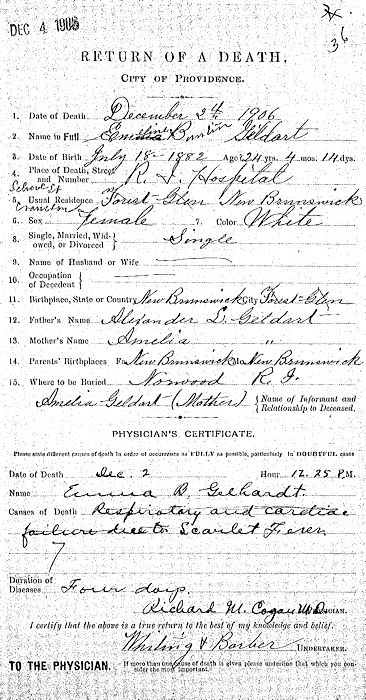 DEC 4 1906
36
RETURN OF A DEATH.
CITY OF PROVIDENCE.
1. Date of Death December 2d 1906
2. Name in Full Emeline Geldart
3. Date of Birth July 18 1882 Age 24 yrs. 4 mos. 14 dys.
4. Place of Death, Street and Number R. I. Hospital
5. Usual Residence Forest Glen New Brunswick
6. Sex Female 7. Color White
8. Single, Married, Widowed, or Divorced } Single
9. Name of Husband or Wife
10. Occupation of Decedent }
11. Birthplace, State or Country New Brunswick City Forest Glen
12. Father's Name Alexander L. Geldart
13. Mother's Name Amelia "
14. Parents' Birthplaces Fa New Brunswick Mo New Brunswick
15. Where to be Buried Norwood R. I.
Amelia Geldart (Mother) { Name of Informant and Relationship to Deceased.
PHYSICIAN'S CERTIFICATE.
Please state different causes of death in order of occurrence as FULLY as possible, particularly in DOUBTFUL cases
Date of Death Dec. 2 Hour 12.25 P.M.
Name Emma B. Gelhardt.
Causes of Death Respiratory and cardiac
failure due to Scarlet Fever
Duration of Diseases Four days.
Richard M. Cogan M.D. PHYSICIAN.
I certify that the above is a true return to the best of my knowledge and belief.
Whiting & Barber UNDERTAKER.
TO THE PHYSICIAN. { If more than one cause of death is given please underline that which you consider the most important.